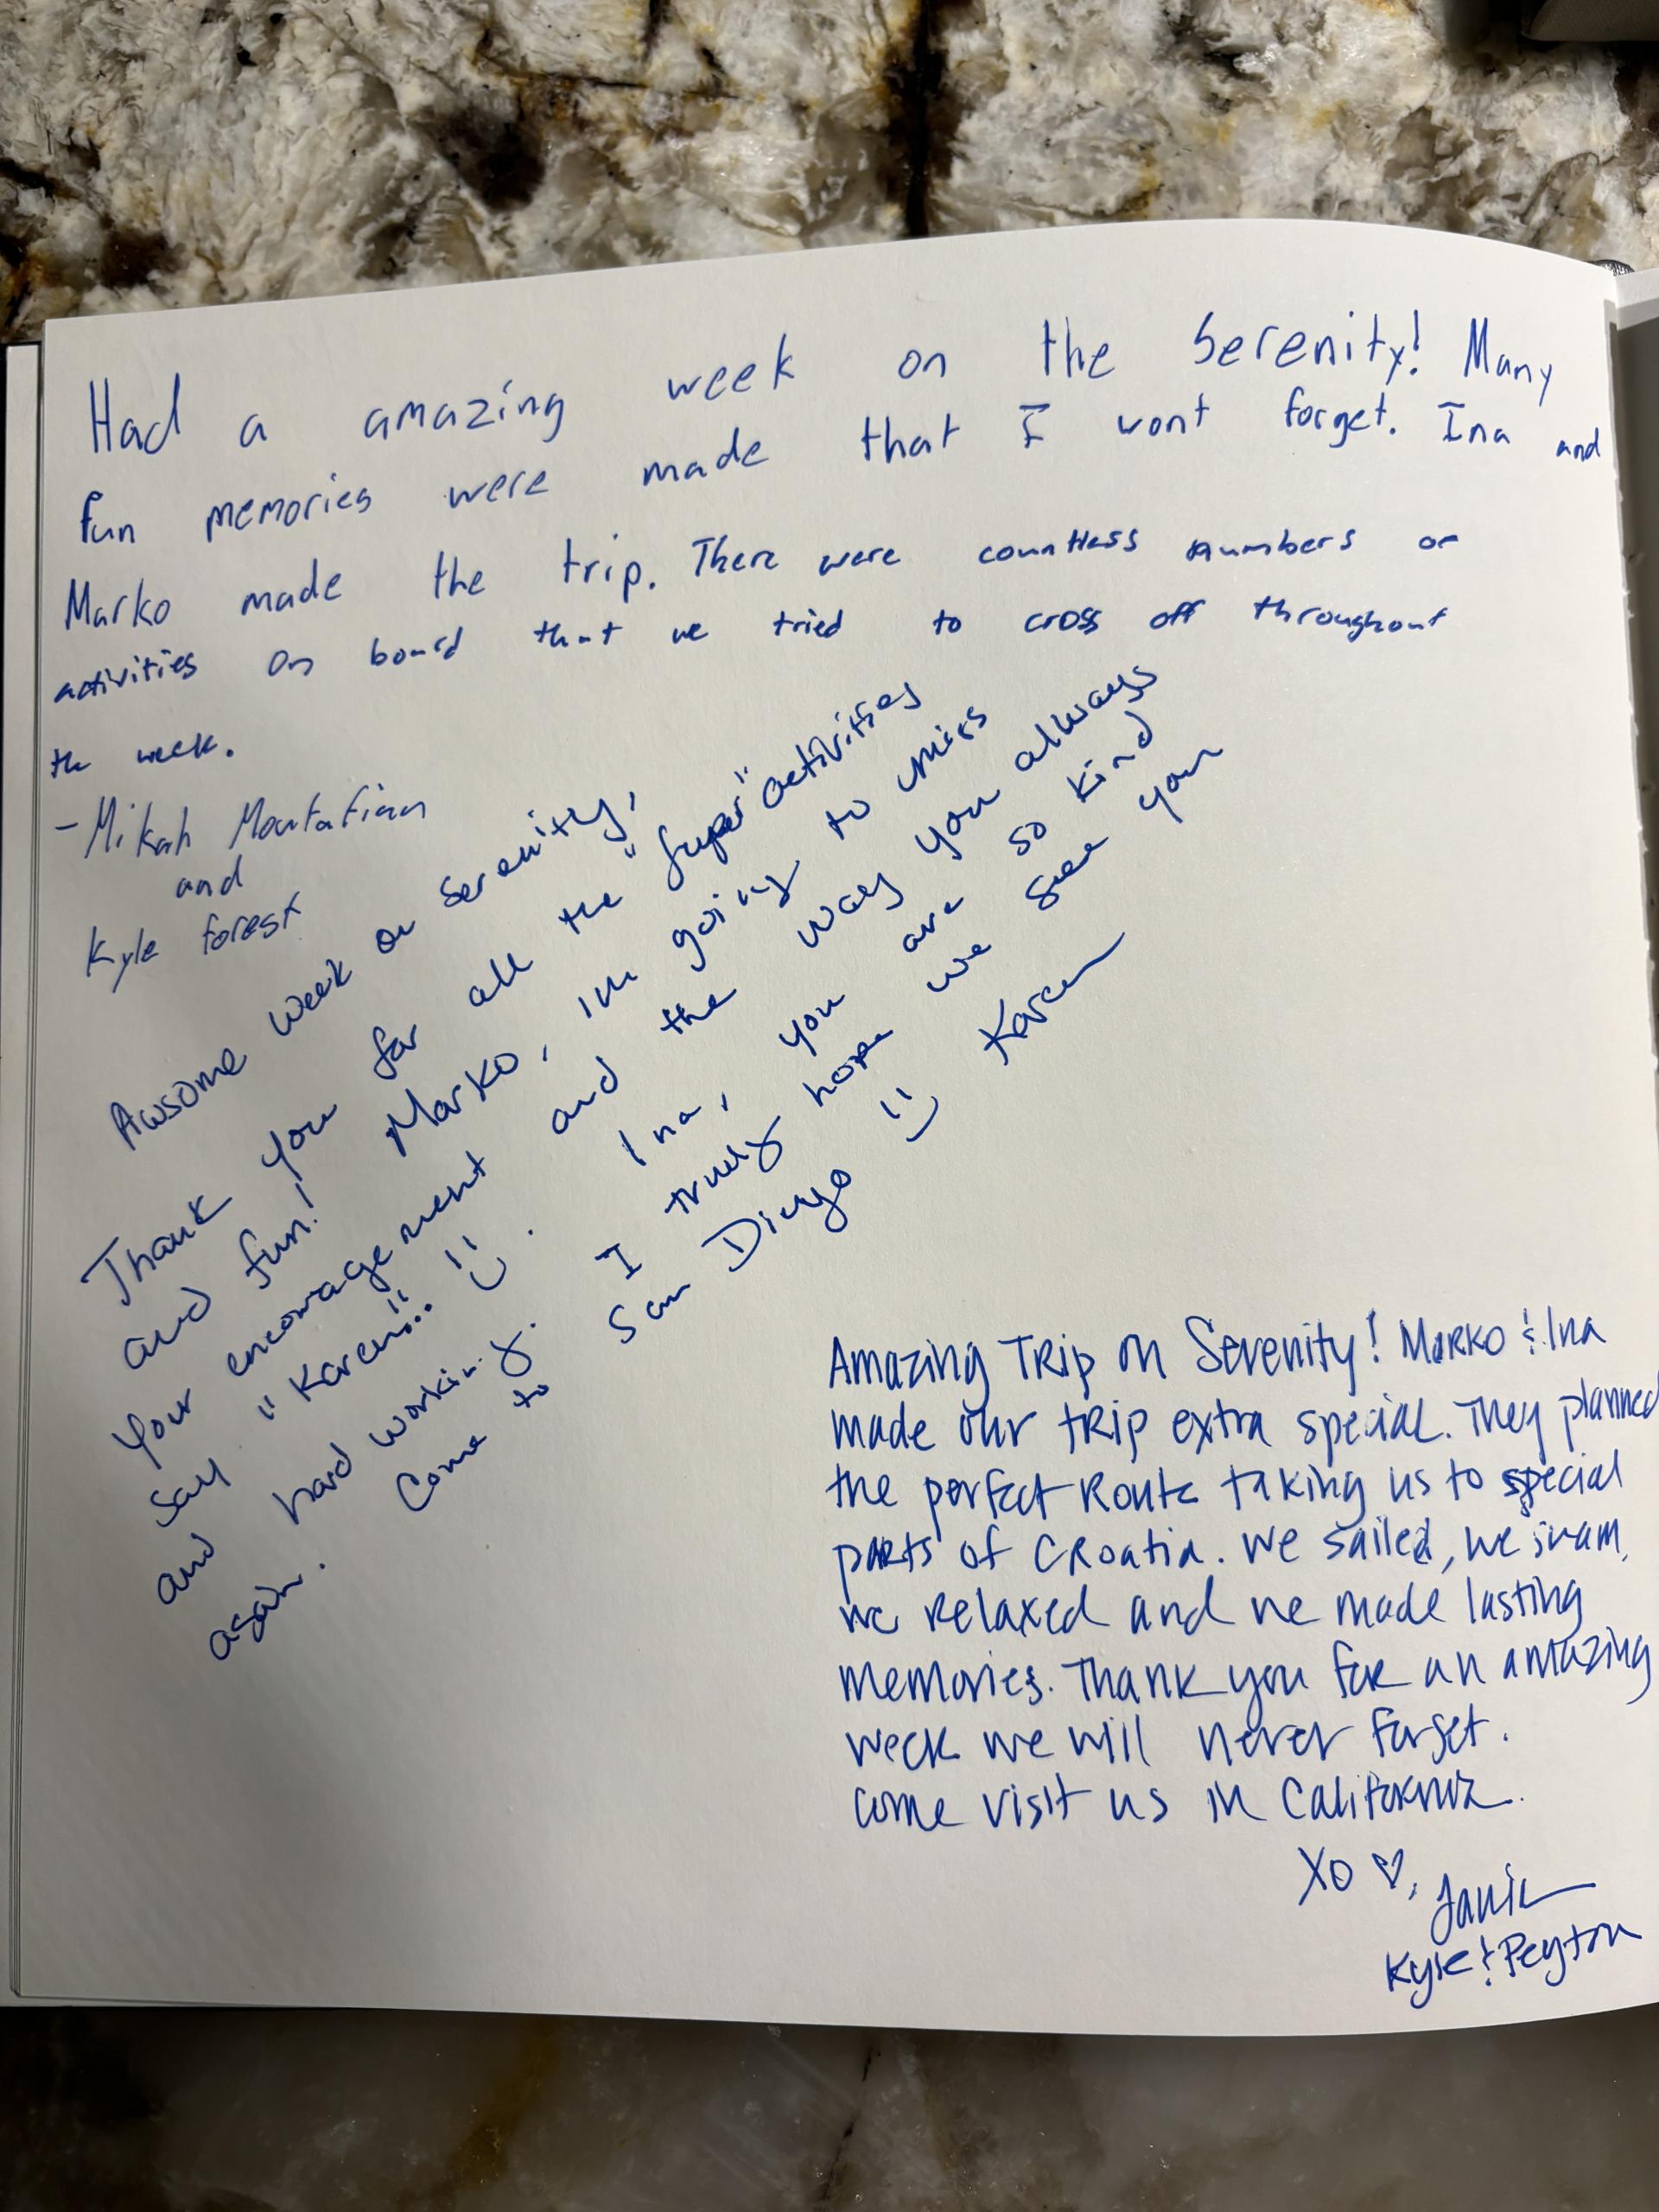 Had a amazing week on the Serenity! Many
fun memories were made that I wont forget. Ina and
Marko made the trip. There were countless numbers of
activities on board that we tried to cross off throughout
the week.
- Mikah
and
Kyle forest
Awsome week on Serenity,
Thank you for all the "super" activities
and fun! Marko, im going to miss
your encouragement and the way you always
say "Karen!!" :) . Ina, you are so kind
and hard working. I truely hope we see you
again. Come to San Diego :) Karen
Amazing Trip on Serenity! Marko & Ina
made our trip extra special. They planned
the perfect Route taking us to special
parts of Croatia. We sailed, we swam,
we relaxed and we made lasting
memories. Thank you for an amazing
week we will never forget.
come visit us in California.
XO ♡,
Kyle & Peyton